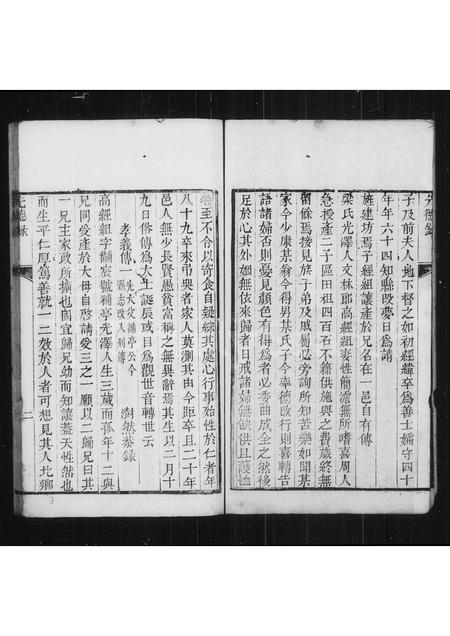 先德錄
子及前夫人地下督之如初經緯卒為善士孀守四十
年年六十四知縣段夢日為請
旌建坊焉子經組讓產於兄名在一邑自有傳
梁氏光澤人文林郎高經組妻性簡澹無所嗜喜周人
急授產二子區田租四百石不籍供施與之費歲終無
留餘焉接見族子弟及戚屬必旁詢所知苦樂如聞某
家今少康某翁今得男某氏子今率德改行則喜轉告
語諸婦否則憂見顏色有得為者必委曲成全之然後
足於心其外姻無依來歸者日戒諸婦無缺供且護
至不合以寄食自疑綜其處心行事殆性於仁者年
八十九卒來弔哭者家人莫測其由今距卒且二十年
邑人無少長賢愚貧富稱之無異辭焉其生以二月十
九日俗傳為大士誕辰或目為觀世音轉世云
孝義傳一 先大父浦亭公今縣志改入列傳 澍然恭錄
高經組字黼宸號補亭光澤人生三歲而孤年十二與
兄同受產於大母自啓請受三之一願以二歸兄曰其
一兄主家政所擴也固宜歸兄幼而知讓蓋天性然也
而生平仁厚篤善就一二效於人者可想見其人北鄉
先德錄
二